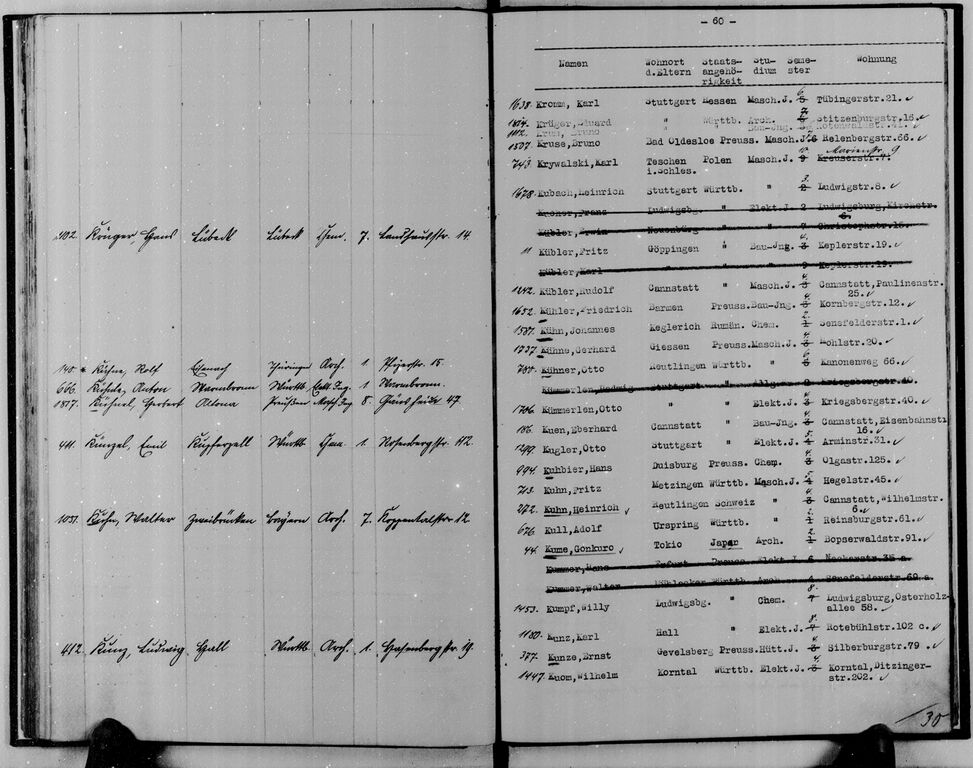 202. Krüger, Hans Lübeck Lübeck Chem. 7. Landhausstr. 14.
140. Kühne, Rolf Eisenach Thüringen Arch. 1 Pfizerstr. 15.
666. Anton Warmbronn Württb. 1 Warmbronn.
1817. Herbert Altona Preußen Masch.Ing. 8. 47
411. Künzel, Emil Kupferzell Württb. 1. Rosenbergstr. 112.
1031. Kuhn, Walter Zweibrücken Bayern Arch. 7. Koppentalstr. 12.
412. Kunz, Ludwig Hall Württb. Arch. 1. Hasenbergstr. 19.
- 60 -
Namen Wohnort d.Eltern Staats-angehö-rigkeit Stu-dium Seme-ster Wohnung
1638. Kromm, Karl Stuttgart Hessen Masch.J. 6 5 Tübingerstr.21.
Krüger, Eduard " Württb. Arch. 7 Stitzenburgstr.16.
1112. Krum, Bruno " " Bau-Jng. Rotenwaldstr.41.
1507. Kruse, Bruno Bad Oldesloe Preuss. Masch.J. 6 Relenbergstr.66.
743. Krywalski, Karl Teschen Polen Masch.J. 10. 9 Marienstr. 9 Kreuserstr.7.
i.Schles.
1678. Kubach, Heinrich Stuttgart Württb. " 3. 2 Ludwigstr.8.
Kroner, Franz Ludwigsbg. " Elekt.J. 2 Ludwigsburg, Kirchstr.
6.
Kübler, Erwin Neuenbürg " " Christophstr.16.
11 Kübler, Fritz Göppingen " Bau-Jng. 4. 3 Keplerstr.19.
Kübler, Karl " " " 2 Keplerstr.19.
1242. Kübler, Rudolf Cannstatt " Masch.J. 4 3 Cannstatt, Paulinenstr.
25.
1652. Kühler, Friedrich Barmen Preuss. Bau-Jng. 4 3 Kornbergstr.12.
1587. Kühn, Johannes Keglerich Rumän. Chem. 2. 1 Senefelderstr.1.
1737. Kühne, Gerhard Giessen Preuss. Masch.J. 4 3 Hohlstr.20.
780. Kühner, Otto Reutlingen Württb. " 6 5 Kanonenweg 66.
Kümmerlen, Ludwig Stuttgart " Allg. 2 Kriegsbergstr.40.
1706. Kümmerlen, Otto " " Elekt.J. 4 3 Kriegsbergstr.40.
186. Kuen, Eberhard Cannstatt " Bau-Jng. 4 3 Cannstatt, Eisenbahnstr
16.
1299. Kugler, Otto Stuttgart " Elekt.J. 5 4 Arminstr.31.
994. Kuhbier, Hans Duisburg Preuss. Chem. 4. 3 Olgastr.125.
713. Kuhn, Fritz Metzingen Württb. Masch.J. 5 4 Hegelstr.45.
272. Kuhn, Heinrich Reutlingen Schweiz " 4 3 Cannstatt, Wilhelmstr.
6
676. Kull, Adolf Urspring Württb. " 2 1 Reinsburgstr.61.
44. Kume, Gonkuro Tokio Japan Arch. 2. 1 Bopserwaldstr.91.
Kummer, Hans Erfurt Preuss. Elekt.J. 6 Neckarstr.35 a.
Kummer, Walter Mühlacker Württb. Arch. 4 Senefelderstr.69 a.
1453. Kumpf, Willy Ludwigsbg. " Chem. 8. 7 Ludwigsburg, Osterholz-
allee 58.
1180. Kunz, Karl Hall " Elekt.J. 8. 7 Rotebühlstr.102 c.
377. Kunze, Ernst Gevelsberg Preuss. Hütt.J. 4 3 Silberburgstr.79
1447. Kuom, Wilhelm Korntal Württb. Elekt.J. 4 3 Korntal, Ditzinger-
str.202.
30